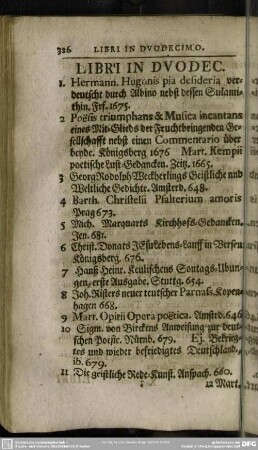 326 LIBRI IN DVODECIMO.
LIBRI IN DVODEC.
1. Hermann. Hugonis pia desideria ver-
deutscht durch Albino nebst dessen Sulami-
thin. Frf. 1675.
2 Poësis triumphans & Musica incantans
eines Mit-Glieds der Fruchtbringenden Ge-
sellschafft nebst einen Commentario über
beyde. Königsberg 1676 Mart. Kempii
poetische Lust-Gedancken. Zeitz. 1665.
3 Georg Rodolph Weckherlings Geistliche und
Weltliche Gedichte. Amsterd. 648.
4 Barth. Christelii Psalterium amoris
Prag 673.
5 Mich. Marquarts Kirchhofs-Gedancken.
Jen. 681.
6 Christ. Donats JEsu Lebens-Lauff in Versen
Königsberg. 676.
7 Hanß Heinr. Keulischens Sontags-Ubun-
gen, erste Ausgabe. Stuttg. 654.
8 Joh. Risters neuer teutscher Parnaß. Kopen-
hagen 668.
9 Mart. Opitii Opera poëtica. Amstrd. 646
10 Sigm. von Birckens Anweisung zur deut-
schen Poesie. Nürnb. 679. Ej. Bekrieg-
tes und wieder befriedigtes Deutschland,
ib. 679.
11 Die geistliche Rede-Kunst. Anspach. 660.
12 Mart.